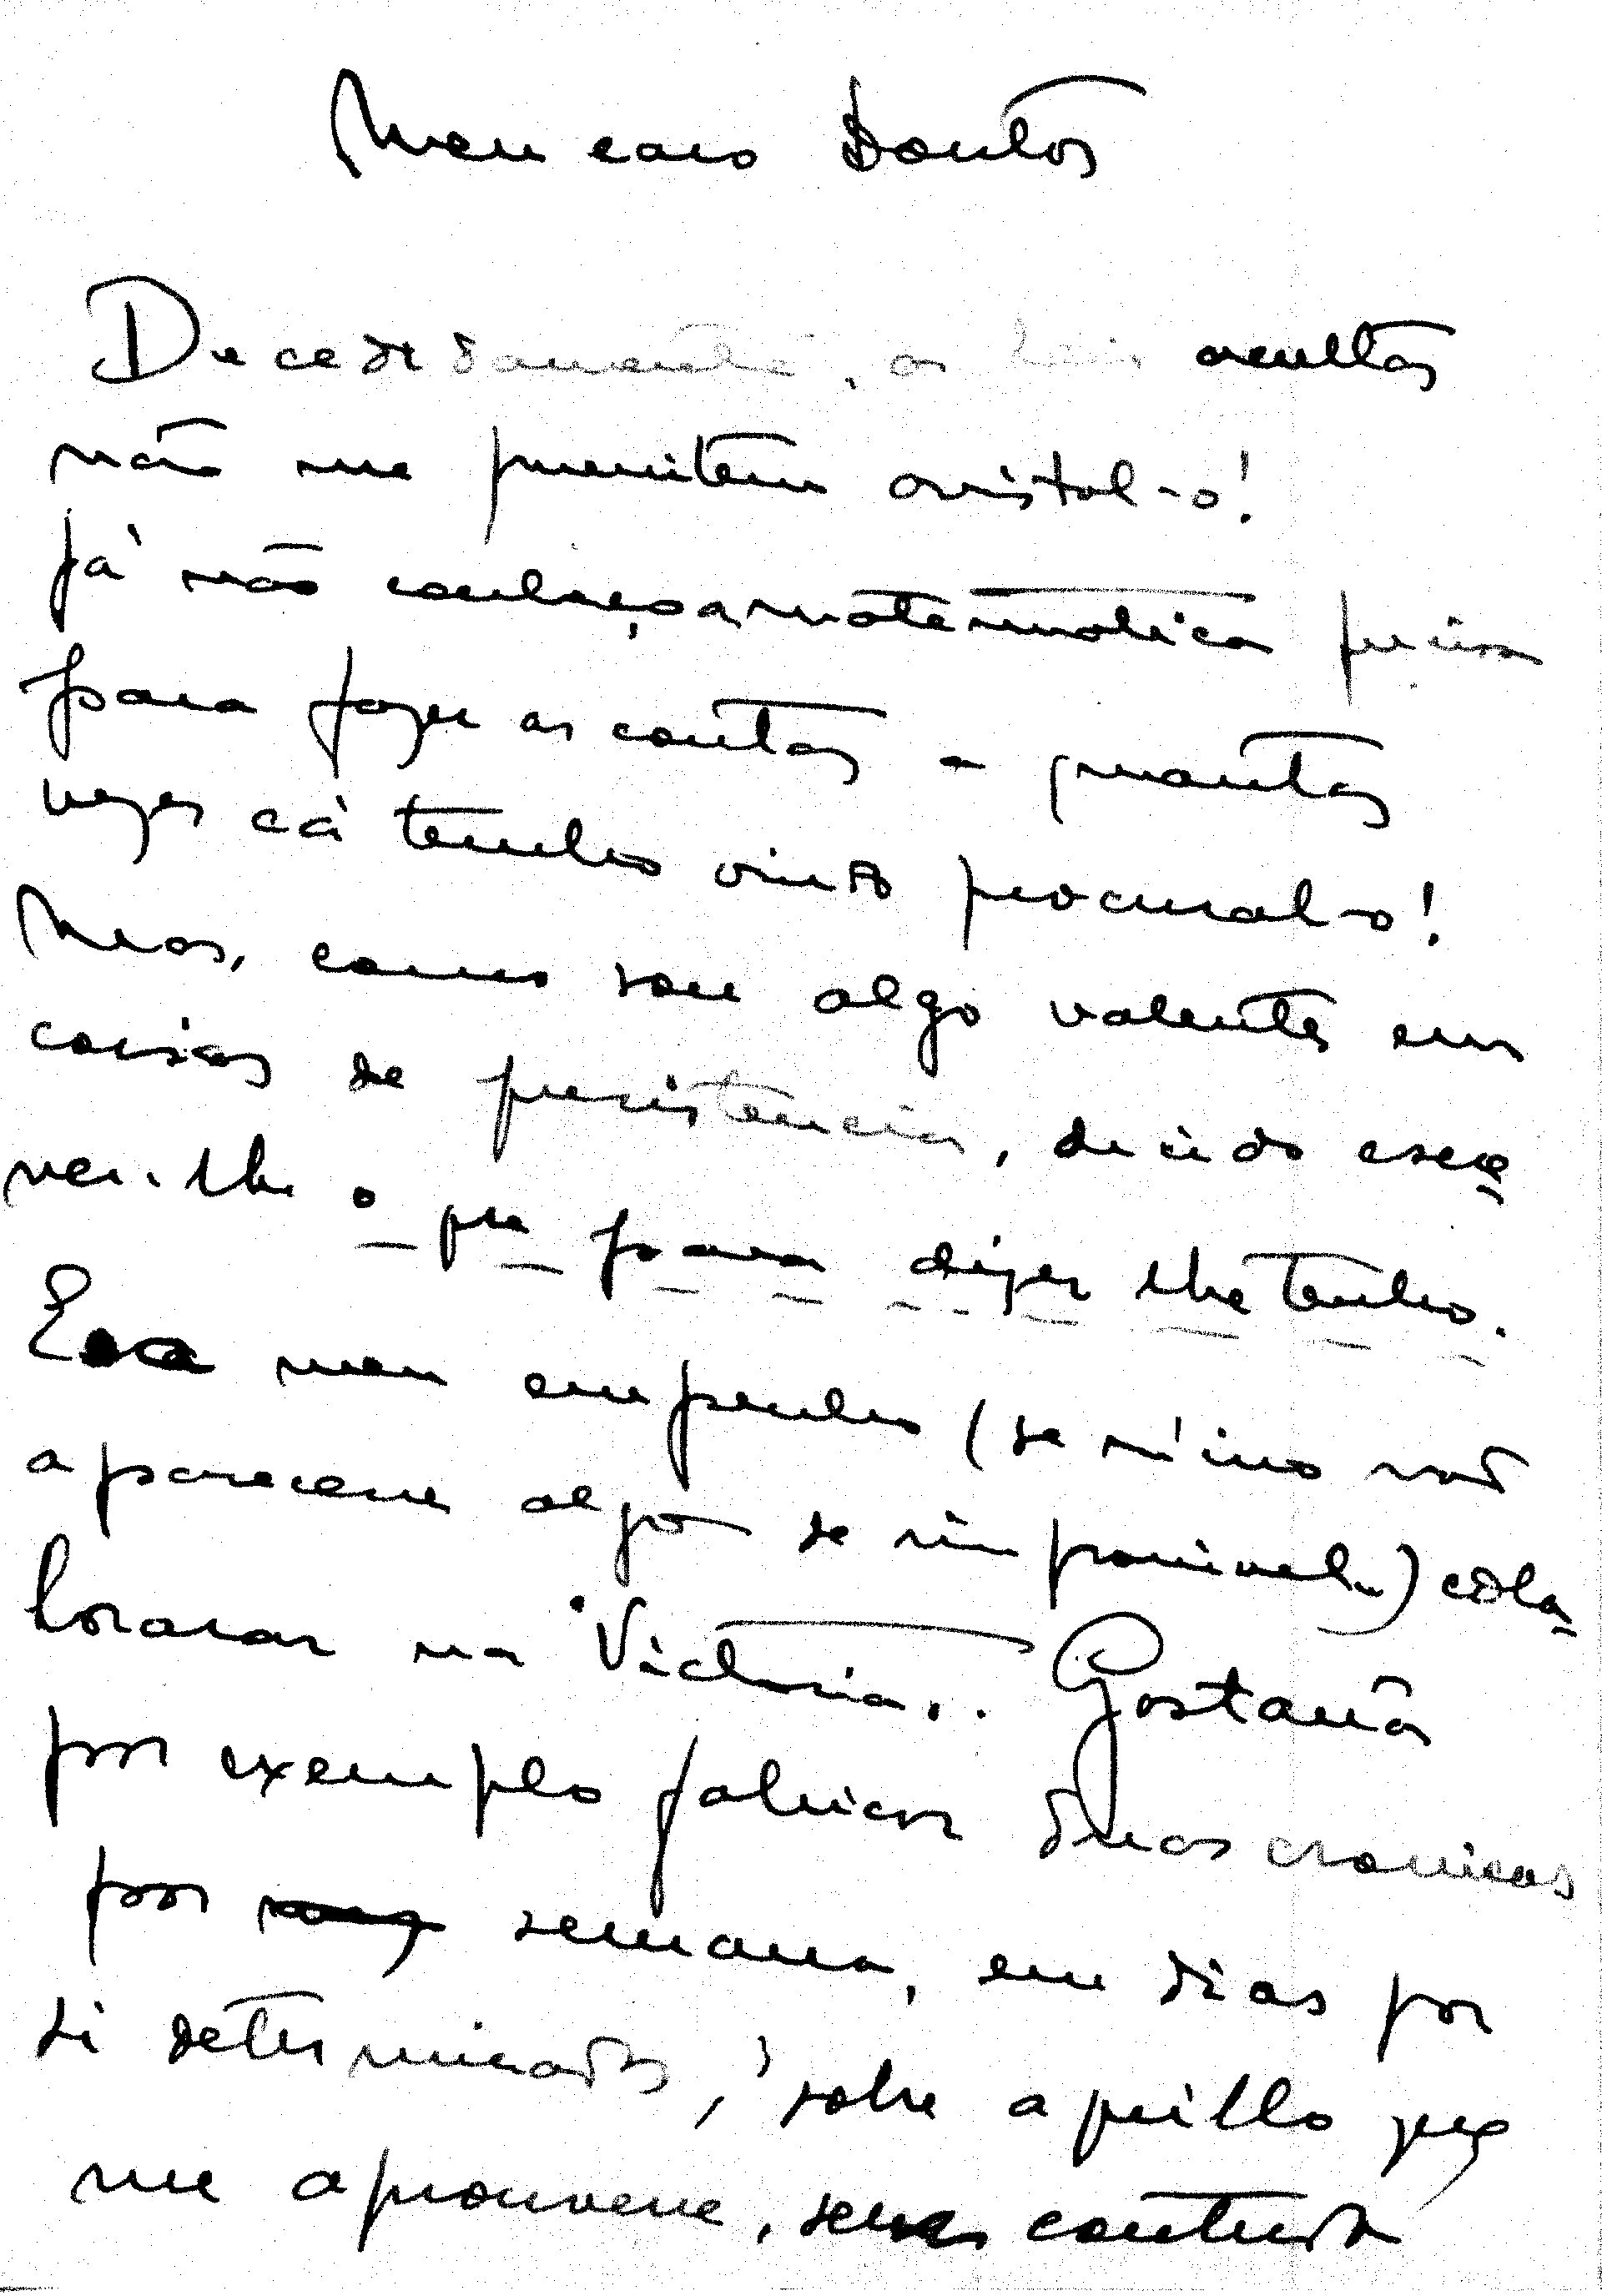 Meu caro Doutor
Decededamente, as leis ocultas
não me permitem avistal-o!
Já não conheço a matematica precisa
para fazer as contas a quantas
vezes cá tenho vindo procural-o!
Mas, como sou algo valente em
coisas de persistencia, decido escre
ver-lhe o que para dizer lhe tenho.
Era meu empenho (se n'isso não
aparecesse algo de impossivel..) cola
borar na "Victoria".. Gostaria
por exemplo fabricar duas cronicas
por semana, em dias por
si determinados, sobre aquillo que
me aprouvesse, sem contudo